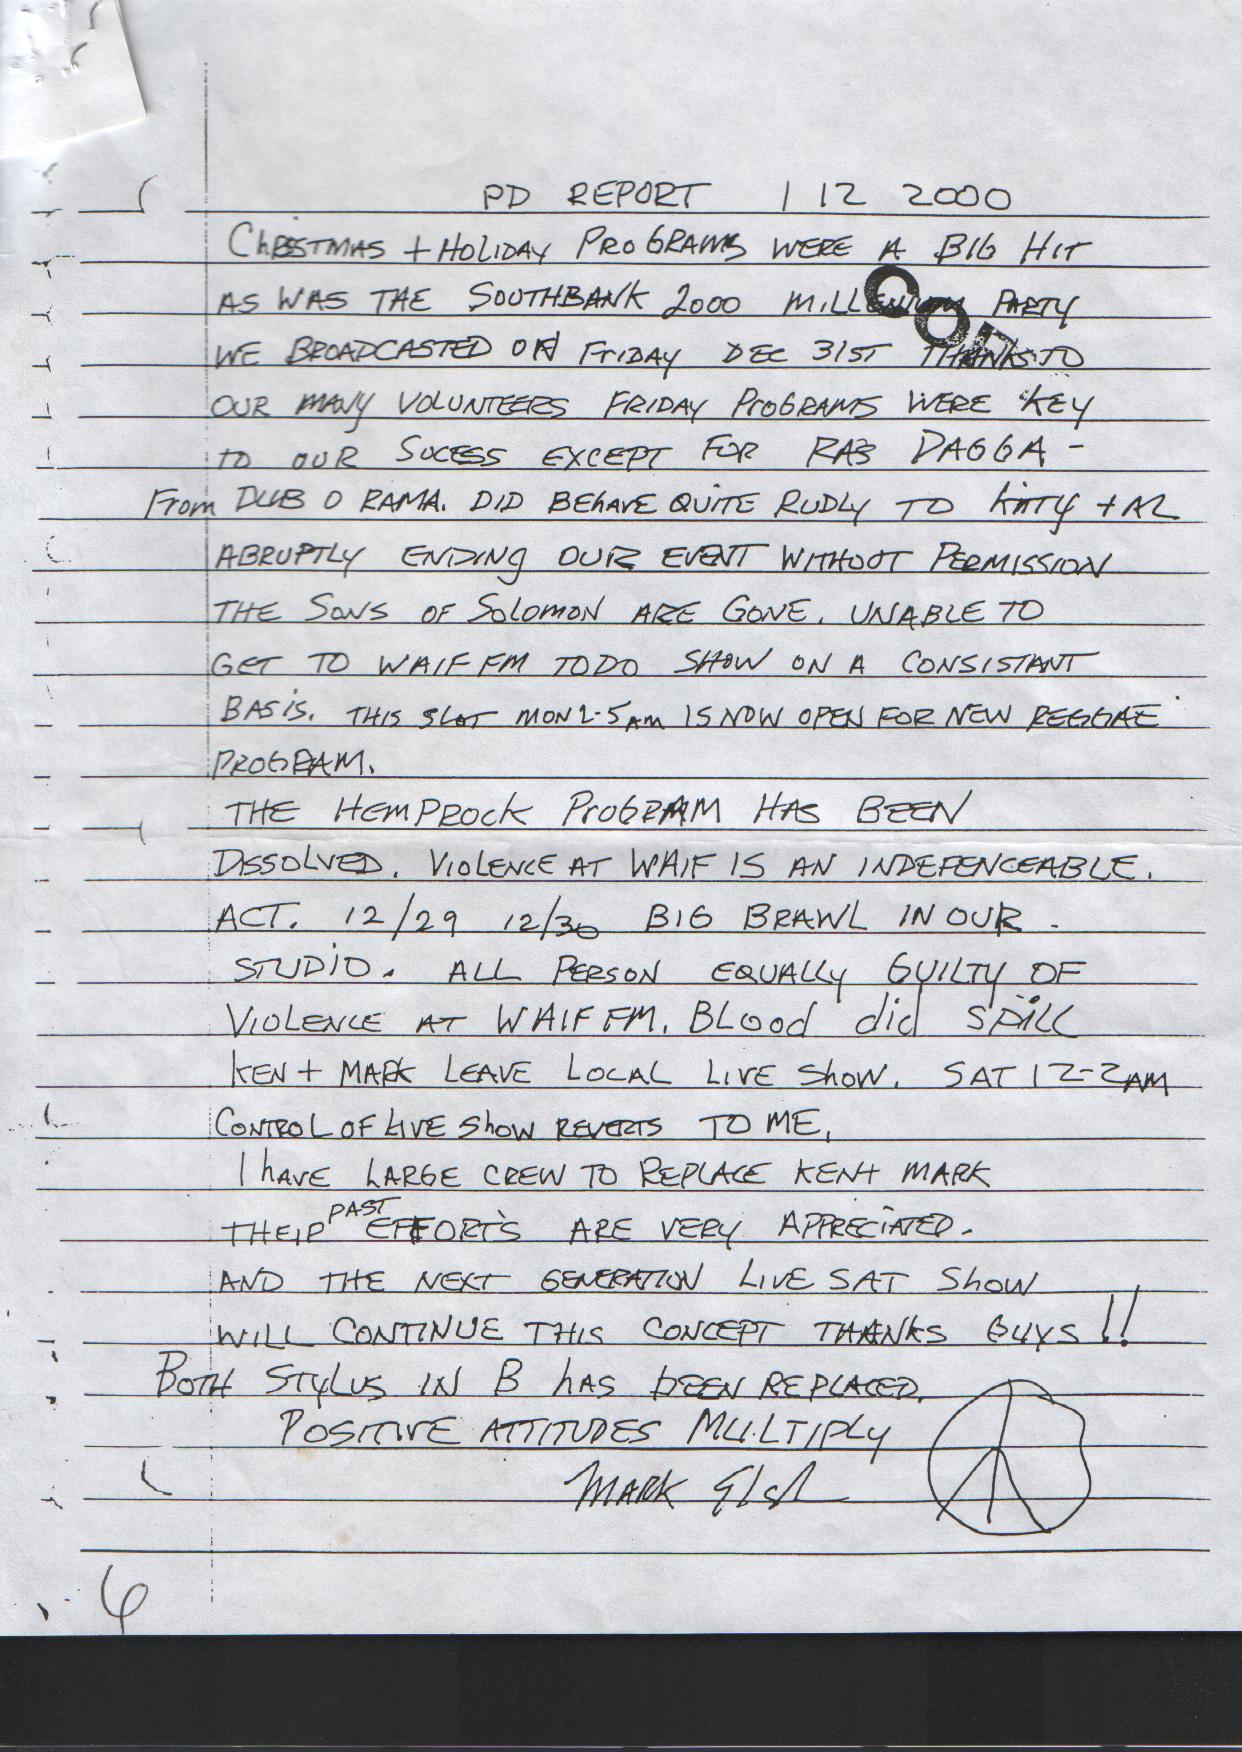 PD REPORT 1 12 2000
CHRISTMAS + HOLIDAY PROGRAMS WERE A BIG HIT
AS WAS THE SOUTHBANK 2000 MILLENIUM PARTY
WE BROADCASTED ON FRIDAY DEC 31ST THANKS TO
OUR MANY VOLUNTEERS FRIDAY PROGRAMS WERE KEY
TO OUR SUCESS EXCEPT FOR RAS DAGGA -
From DUB O RAMA. DID BEHAVE QUITE RUDLY TO + AL
ABRUPTLY ENDING OUR EVENT WITHOUT PERMISSION
THE SONS OF SOLOMON ARE GONE. UNABLE TO
GET TO WAIF FM TO DO SHOW ON A CONSISTANT
BASIS. THIS SLOT MON 2-5AM IS NOW OPEN FOR NEW REGGAE
PROGRAM.
THE HEMPROCK PROGRAM HAS BEEN
DISSOLVED. VIOLENCE AT WAIF IS AN INDEFENCEABLE.
ACT. 12/29 12/30 BIG BRAWL IN OUR -
STUDIO. ALL PERSON EQUALLY GUILTY OF
VIOLENCE AT WAIF FM. BLOOD did SPILL
KEN + MARK LEAVE LOCAL LIVE SHOW. SAT 12-2AM
CONTROL OF LIVE SHOW REVERTS TO ME.
I HAVE LARGE CREW TO REPLACE KEN + MARK
THEIR PAST EFFORTS ARE VERY APPRECIATED.
AND THE NEXT GENERATION LIVE SAT SHOW
WILL CONTINUE THIS CONCEPT THANKS GUYS!!
BOTH STYLUS IN B HAS BEEN REPLACED.
POSITIVE ATTITUDES MULTIPLY
MARK
6